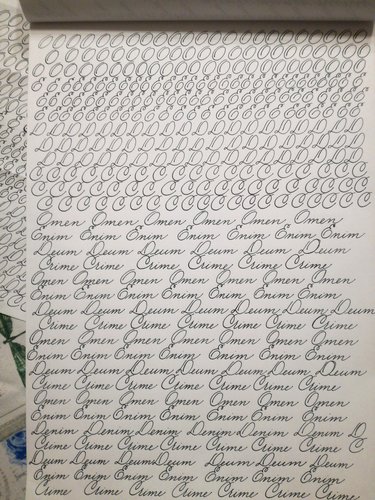 O O O O O O O O O O O O O O O O O
O O O O O O O O O O O O O O O O O
O O O O O O O O O O O O O O O O O
D D D D D D D D D D D D D D D
D D D D D D D D D D D D D D D
D D D D D D D D D D D D D D D
C C C C C C C C C C C C C C C C C
C C C C C C C C C C C C C C C C C
C C C C C C C C C C C C C C C C C
Omen Omen Omen Omen Omen Omen
Enim Enim Enim Enim Enim Enim Enim
Deum Deum Deum Deum Deum Deum
Crime Crime Crime Crime Crime Crime
Omen Omen Omen Omen Omen Omen Omen
Enim Enim Enim Enim Enim Enim Enim
Deum Deum Deum Deum Deum Deum Deum
Crime Crime Crime Crime Crime Crime Crime
Omen Omen Omen Omen Omen Omen Omen
Enim Enim Enim Enim Enim Enim Enim
Deum Deum Deum Deum Deum Deum Deum
Crime Crime Crime Crime Crime Crime Crime
Omen Omen Omen Omen Omen Omen Omen
Enim Enim Enim Enim Enim Enim Enim
Denim Denim Denim Denim Denim Denim D
Crime Crime Crime Crime Crime Crime Crime C
Deum Deum Deum Deum Deum Deum Deum
Enim Enim Enim Enim Enim Enim Enim
Crime Crime Crime Crime Crime Crime Crime